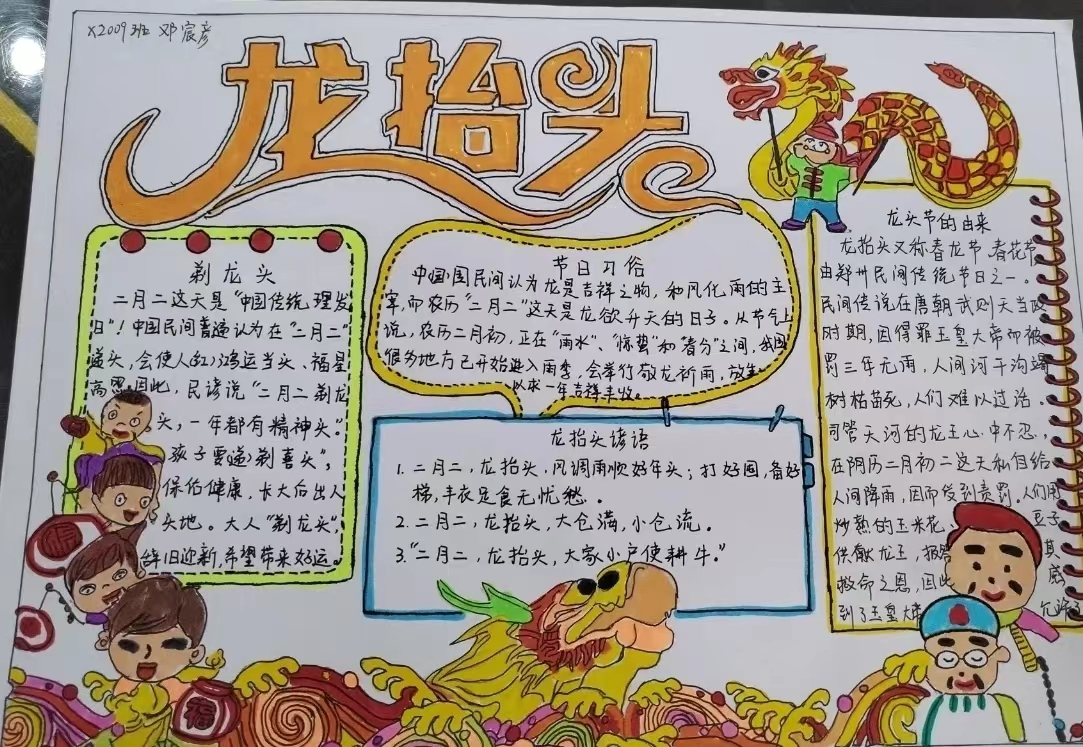 X2009班 邓宸彦
龙抬头
剃龙头
二月二这天是“中国传统理发
日”！中国民间普遍认为在“二月二”
头，会使人红鸿运当头、福星
高 因此，民谚说“二月二剃龙
头，一年都有精神头”。
孩子要 剃喜头”，
保佑健康，长大后出人
头地。大人“剃龙头”，
辞旧迎新，希望带来好运。
节日习俗
中国国民间认为龙是吉祥之物，和风化雨的主
宰，而农历“二月二”这天是龙欲升天的日子。从节气上
说，农历二月初，正在“雨水”、“惊蛰”和“春分”之间，我国
很多地方已开始进入雨季，会举行敬龙祈雨，放生
以求一年吉祥丰收。
龙抬头谚语
1. 二月二，龙抬头，风调雨顺好年头；打好囤，备好
梯，丰衣足食无忧愁。
2. 二月二，龙抬头，大仓满，小仓流。
3.“二月二，龙抬头，大家小户使耕牛。”
龙头节的由来
龙抬头又称春龙节，春花节
由郑州民间传统节日之一。
民间传说在唐朝武则天当政
时期，因得罪玉皇大帝而被
罚三年无雨，人间河干沟竭
树枯苗死，人们难以过活．
司管天河的龙王心中不忍，
在阴历二月初二这天私自给
人间降雨，因而受到责罚。人们用
炒熟的玉米花、 豆子
供献龙王，报答 其
救命之恩，因此 感
到了玉皇大帝 允许
福